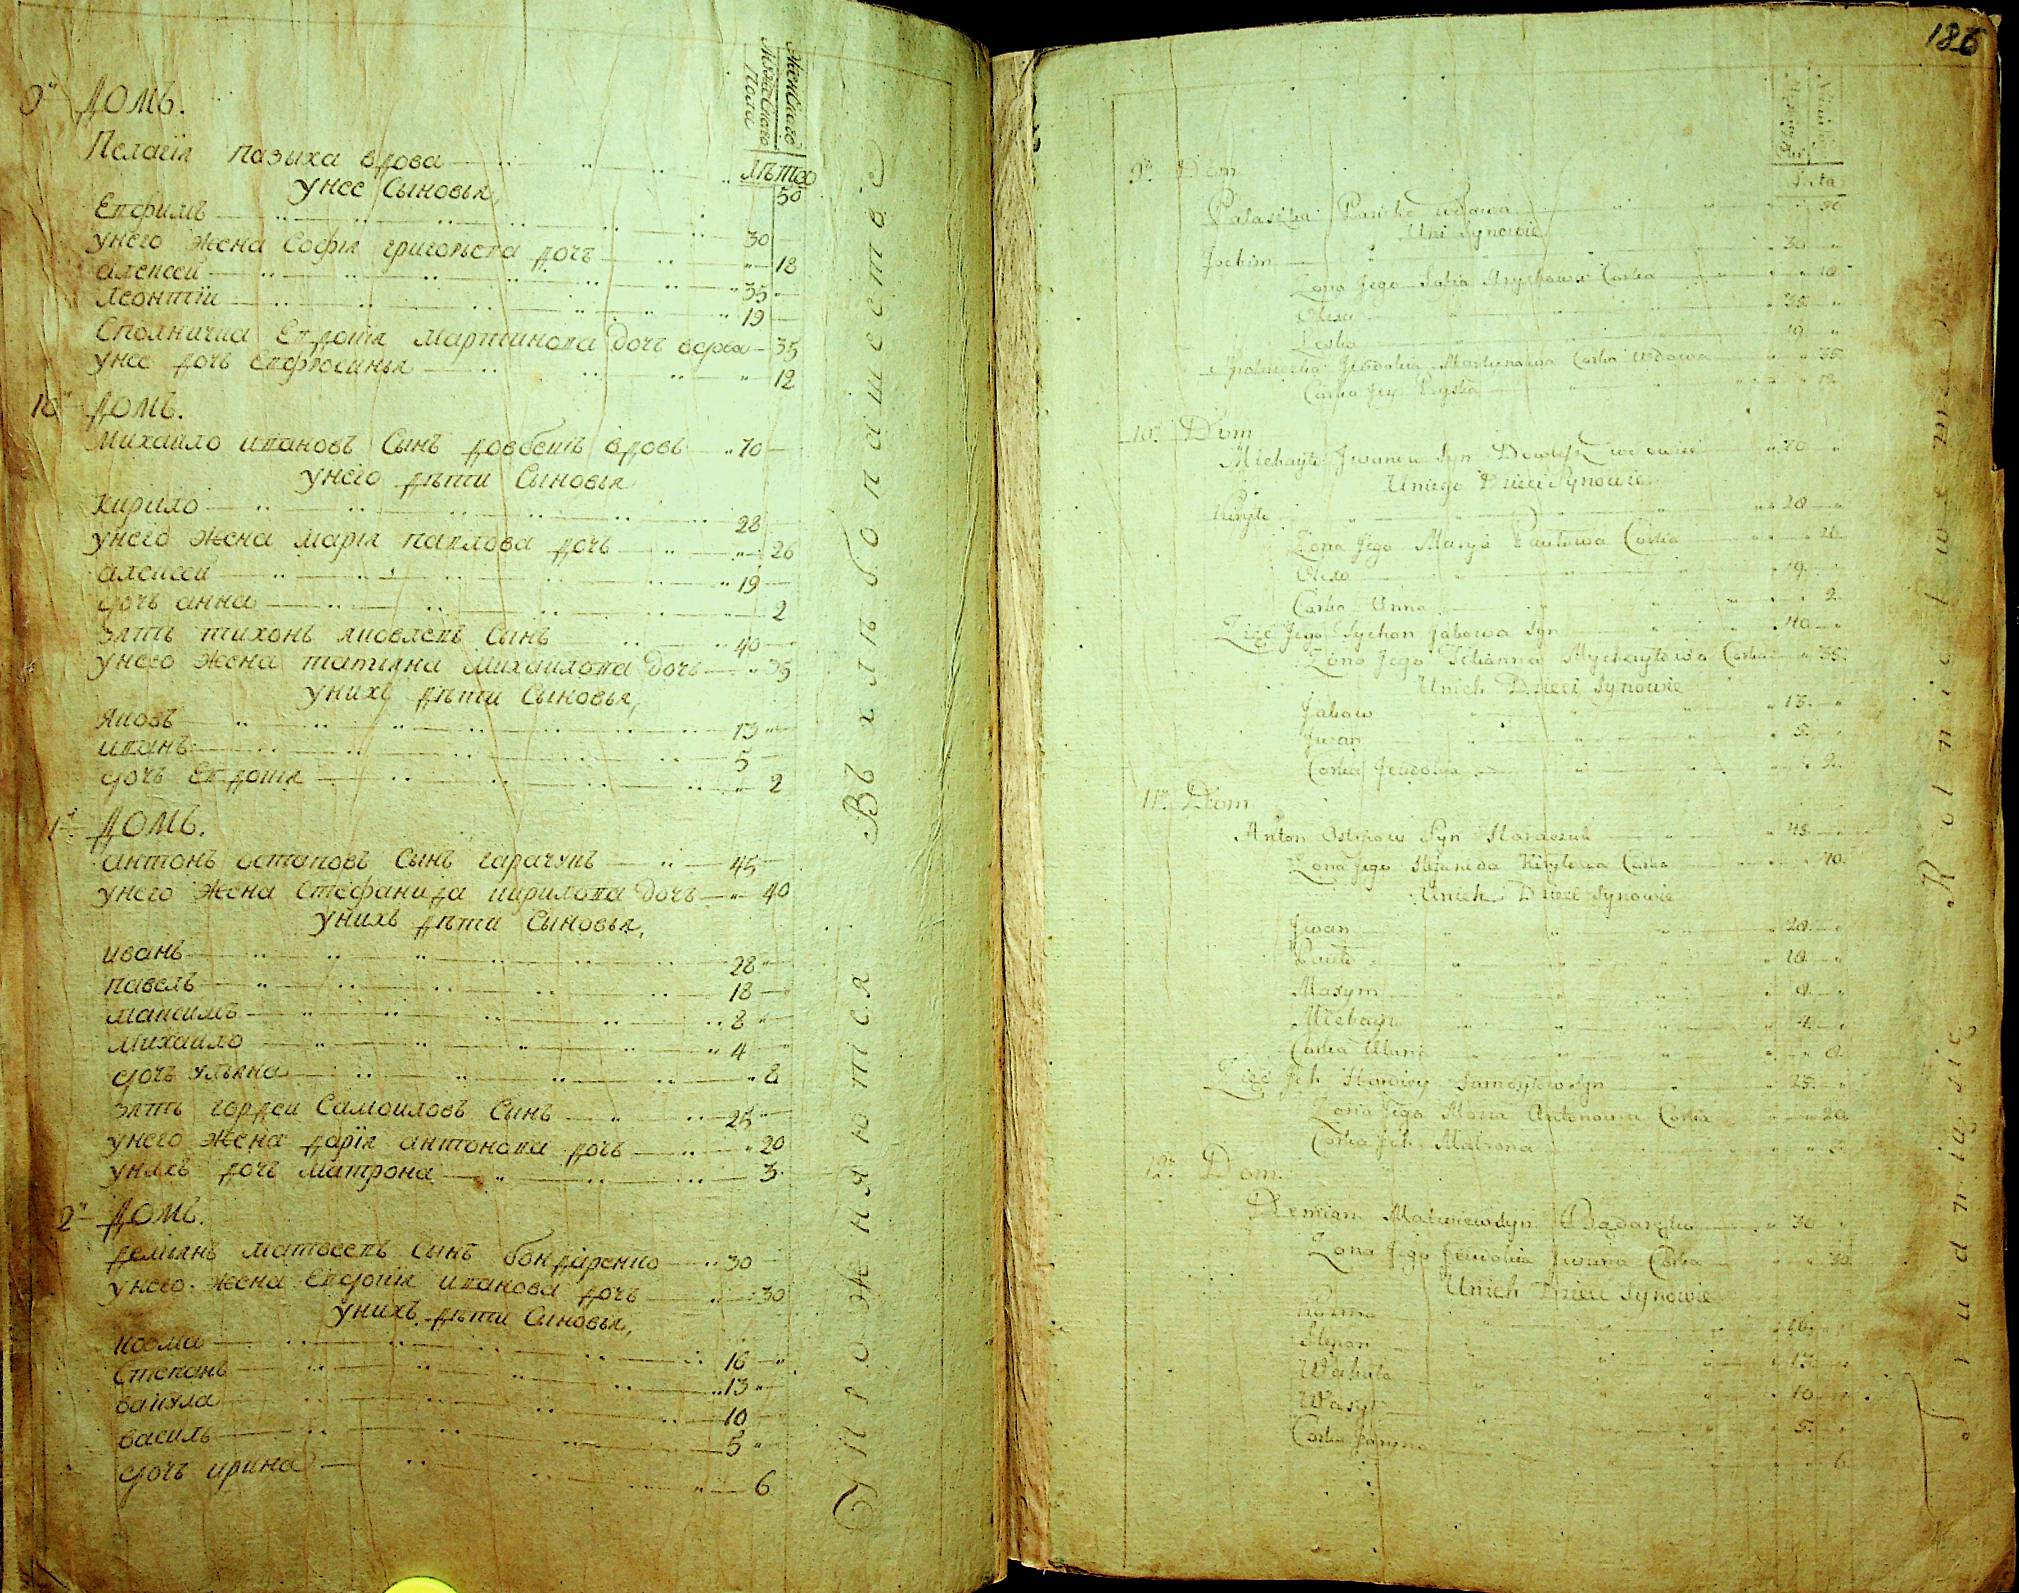 Женского
Мужского
Пола
9й Домъ.
лѣта
Пелагія пазыха вдова 50
унее Сыновья,
Евфимъ 30
унего жена Софія григорьева дочь 18
алексей 35
леонтіи 19
Сполничка Евдокія Мартинова дочь вдова 35
унее дочь Евфросинья 12
10й Домъ.
Михайло ивановъ Сынъ довбышъ вдовъ 70
унего дѣти Сыновья
кирило 28
унего жена марія павлова дочь 26
алексей 19
дочь анна 2
зять тихонъ яковлевъ Сынъ 40
унего жена татияна михаилова дочь 35
унихъ дѣти Сыновья,
яковъ 13
иванъ 5
дочь Евдокія 2
11й Домъ.
антонъ остаповъ Сынъ гарачукъ 45
унего жена Стефанида кирилова дочь 40
унихъ дѣти Сыновья,
иванъ 28
павелъ 18
максимъ 8
михаило 4
дочь ульяна 8
зять гордеи Самоиловъ Сынъ 25
унего жена дарія антонова дочь 20
унихъ дочь матрона 3
2й Домъ.
демьянъ матвеевъ Сынъ бондаренко 30
унего жена Евдокія иванова дочь 30
унихъ дѣти Сыновья,
козма 16
Степанъ 13
вакула 10
василь 5
дочь ирина 6
Въ хлѣбопашествѣ
Упрожняются
186
Lata
9. Dom
wdowa
Uni Synowie
Jochim 30
Zona Jego Corka 18
35
Lesko 19
Jeudokia Martynowa Corka wdowa 35
Corka Jey 12
10. Dom
Michayło Jwanow Syn 70
Uniego Dzieci Synowie
Kiryło 28
Zona Jego Marya Pawłowa Corka 26
Olexa 19
Corka Anna 2
Zięć Jego Tychon Jakowa Syn 40
Zona Jego Tetianna Mychayłowa Corka 35
Unich Dzieci Synowie
Jakow 13
Jwan 5
Corka Jeudokia 2
11. Dom
Anton Ostapow Syn Haraczuk 45
Zona Jego Kiryłowa Corka 40
Unich Dzieci Synowie
Jwan 28
Pawło 18
Maxym 8
Michayło 4
Corka Ulana 8
Zięć Jch Samoyłow Syn 25
Zona Jego Antonowa Corka 20
Corka Jch Matrona 3
12. Dom
Demian Matwiew Syn 30
Zona Jego Jeudokia Jwana Corka 30
Unich Dzieci Synowie
Kuzma 16
Stepan 13
Wakuła 10
Wasyl 5
Corka Jaryna 6
Rolnictwem
Trudnią się